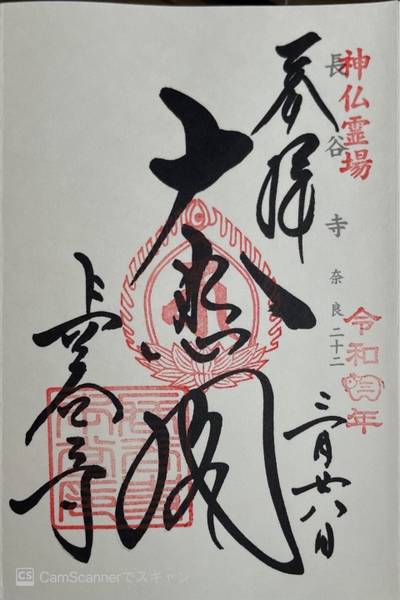 神仏霊場
長谷寺 奈良二十二
奉拝
令和三年
三月廿八日
大悲閣
長谷寺
CS CamScannerでスキャン